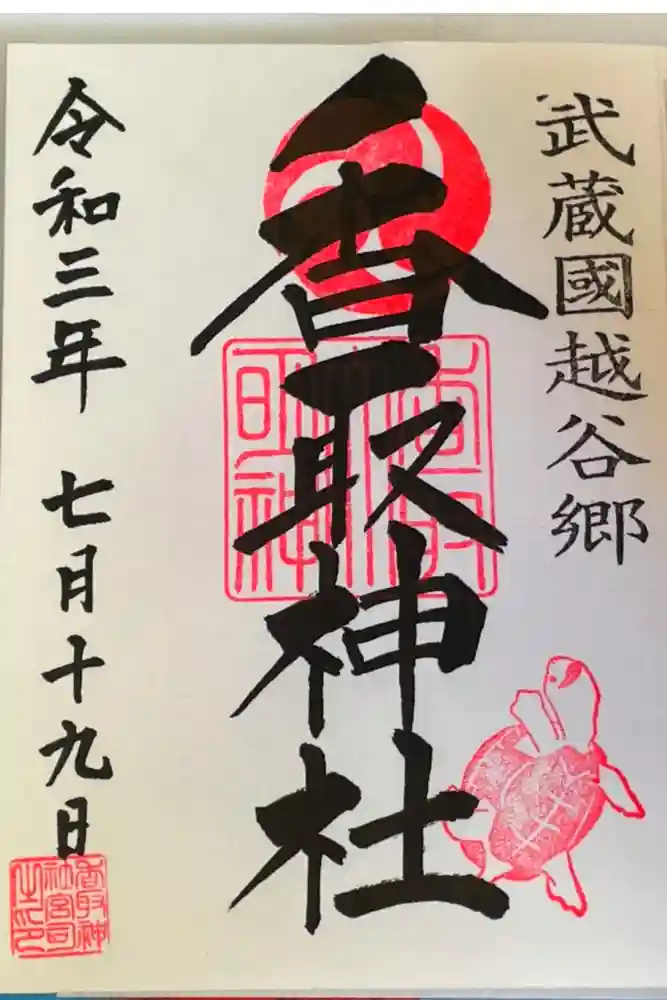 武蔵國越谷郷
香取神社
令和三年 七月十九日
香取神
社宮司
之印